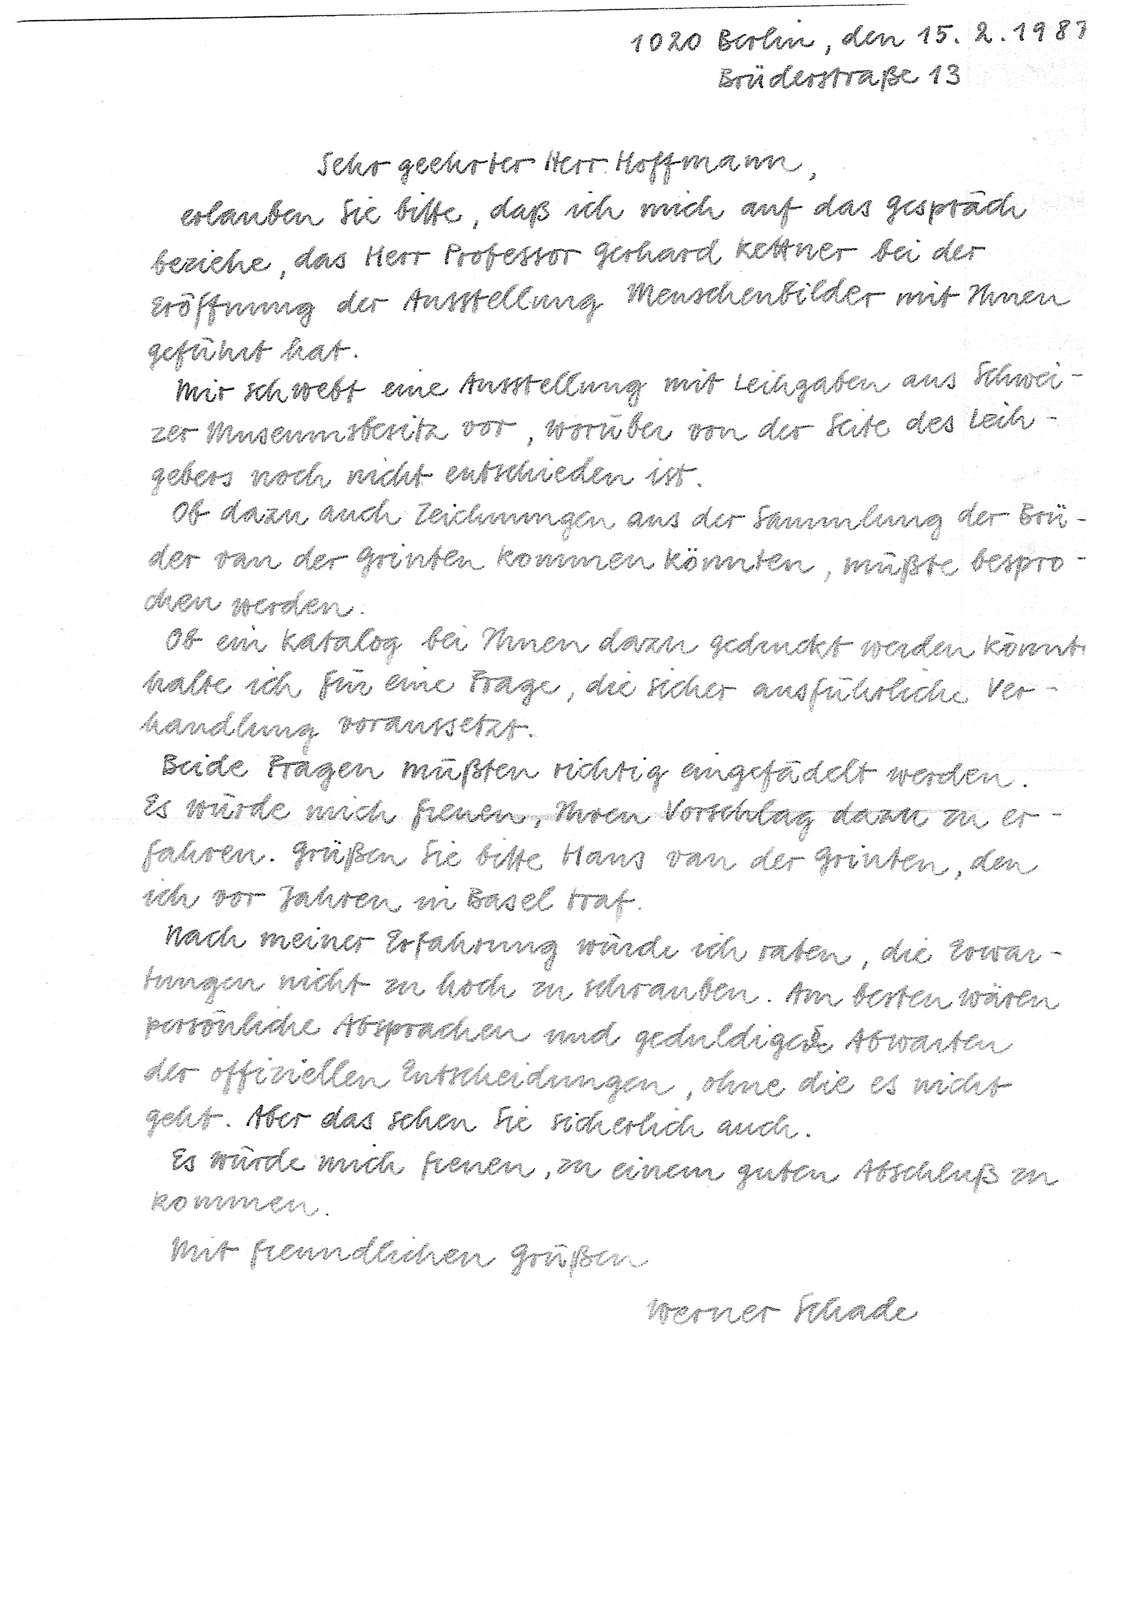 1020 Berlin, den 15. 2. 1987
Brüderstraße 13
Sehr geehrter Herr Hoffmann,
erlauben Sie bitte, daß ich mich auf das Gespräch
beziehe, das Herr Professor Gerhard Kettner bei der
Eröffnung der Ausstellung Menschenbilder mit Ihnen
geführt hat.
Mir schwebt eine Ausstellung mit Leihgaben aus Schwei-
zer Museumsbesitz vor, worüber von der Seite des Leih-
gebers noch nicht entschieden ist.
Ob dazu auch Zeichnungen aus der Sammlung der Brü-
der van der Grinten kommen könnten, müßte bespro-
chen werden.
Ob ein Katalog bei Ihnen dazu gedruckt werden könnt
halte ich für eine Frage, die sicher ausführliche Ver-
handlung voraussetzt.
Beide Fragen müßten richtig eingefädelt werden.
Es würde mich freuen, Ihren Vorschlag dazu zu er-
fahren. Grüßen Sie bitte Hans van der Grinten, den
ich vor Jahren in Basel traf.
Nach meiner Erfahrung würde ich raten, die Erwar-
tungen nicht zu hoch zu schrauben. Am besten wären
persönliche Absprachen und geduldiges Abwarten
der offiziellen Entscheidungen, ohne die es nicht
geht. Aber das sehen Sie sicherlich auch.
Es würde mich freuen, zu einem guten Abschluß zu
kommen.
Mit freundlichen Grüßen
Werner Schade